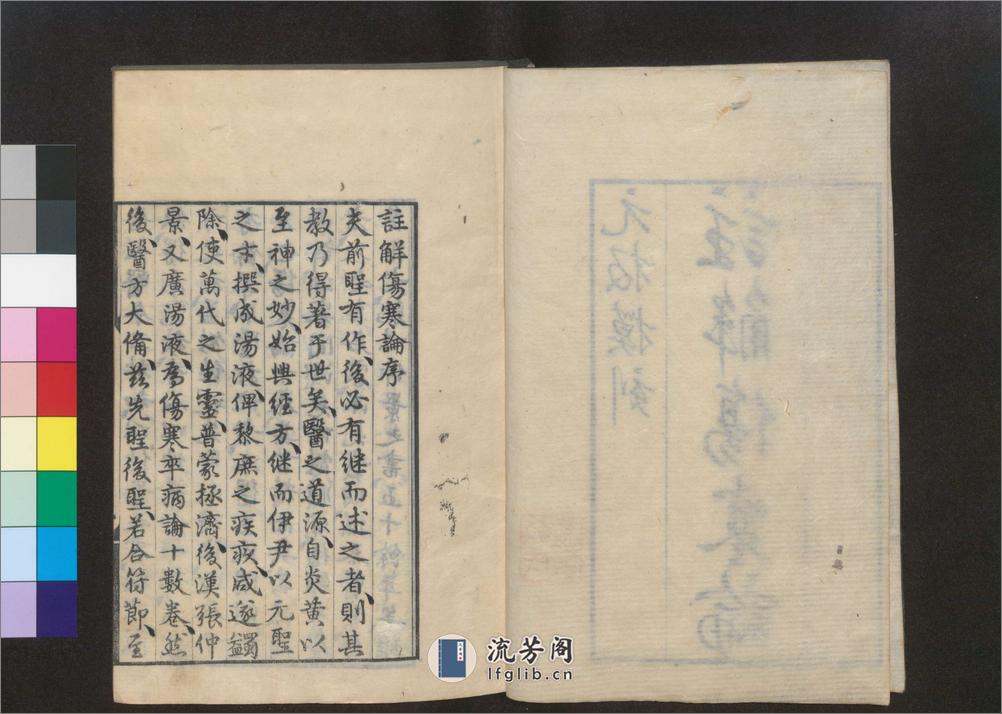 註解傷寒論序
夫前聖有作、後必有继而述之者、則其
教乃得著于世矣、醫之道源、自炎黄以
至神之妙、始興經方、继而伊尹以元聖
之才、撰成湯液、俾黎庶之疾疚、咸遂蠲
除、使萬代之生靈、普蒙拯濟、後漢張仲
景、又廣湯液、為傷寒卒病論十數卷、然
後、醫方大備、兹先聖後聖、若合符節、至
流芳阁
lfglib.cn